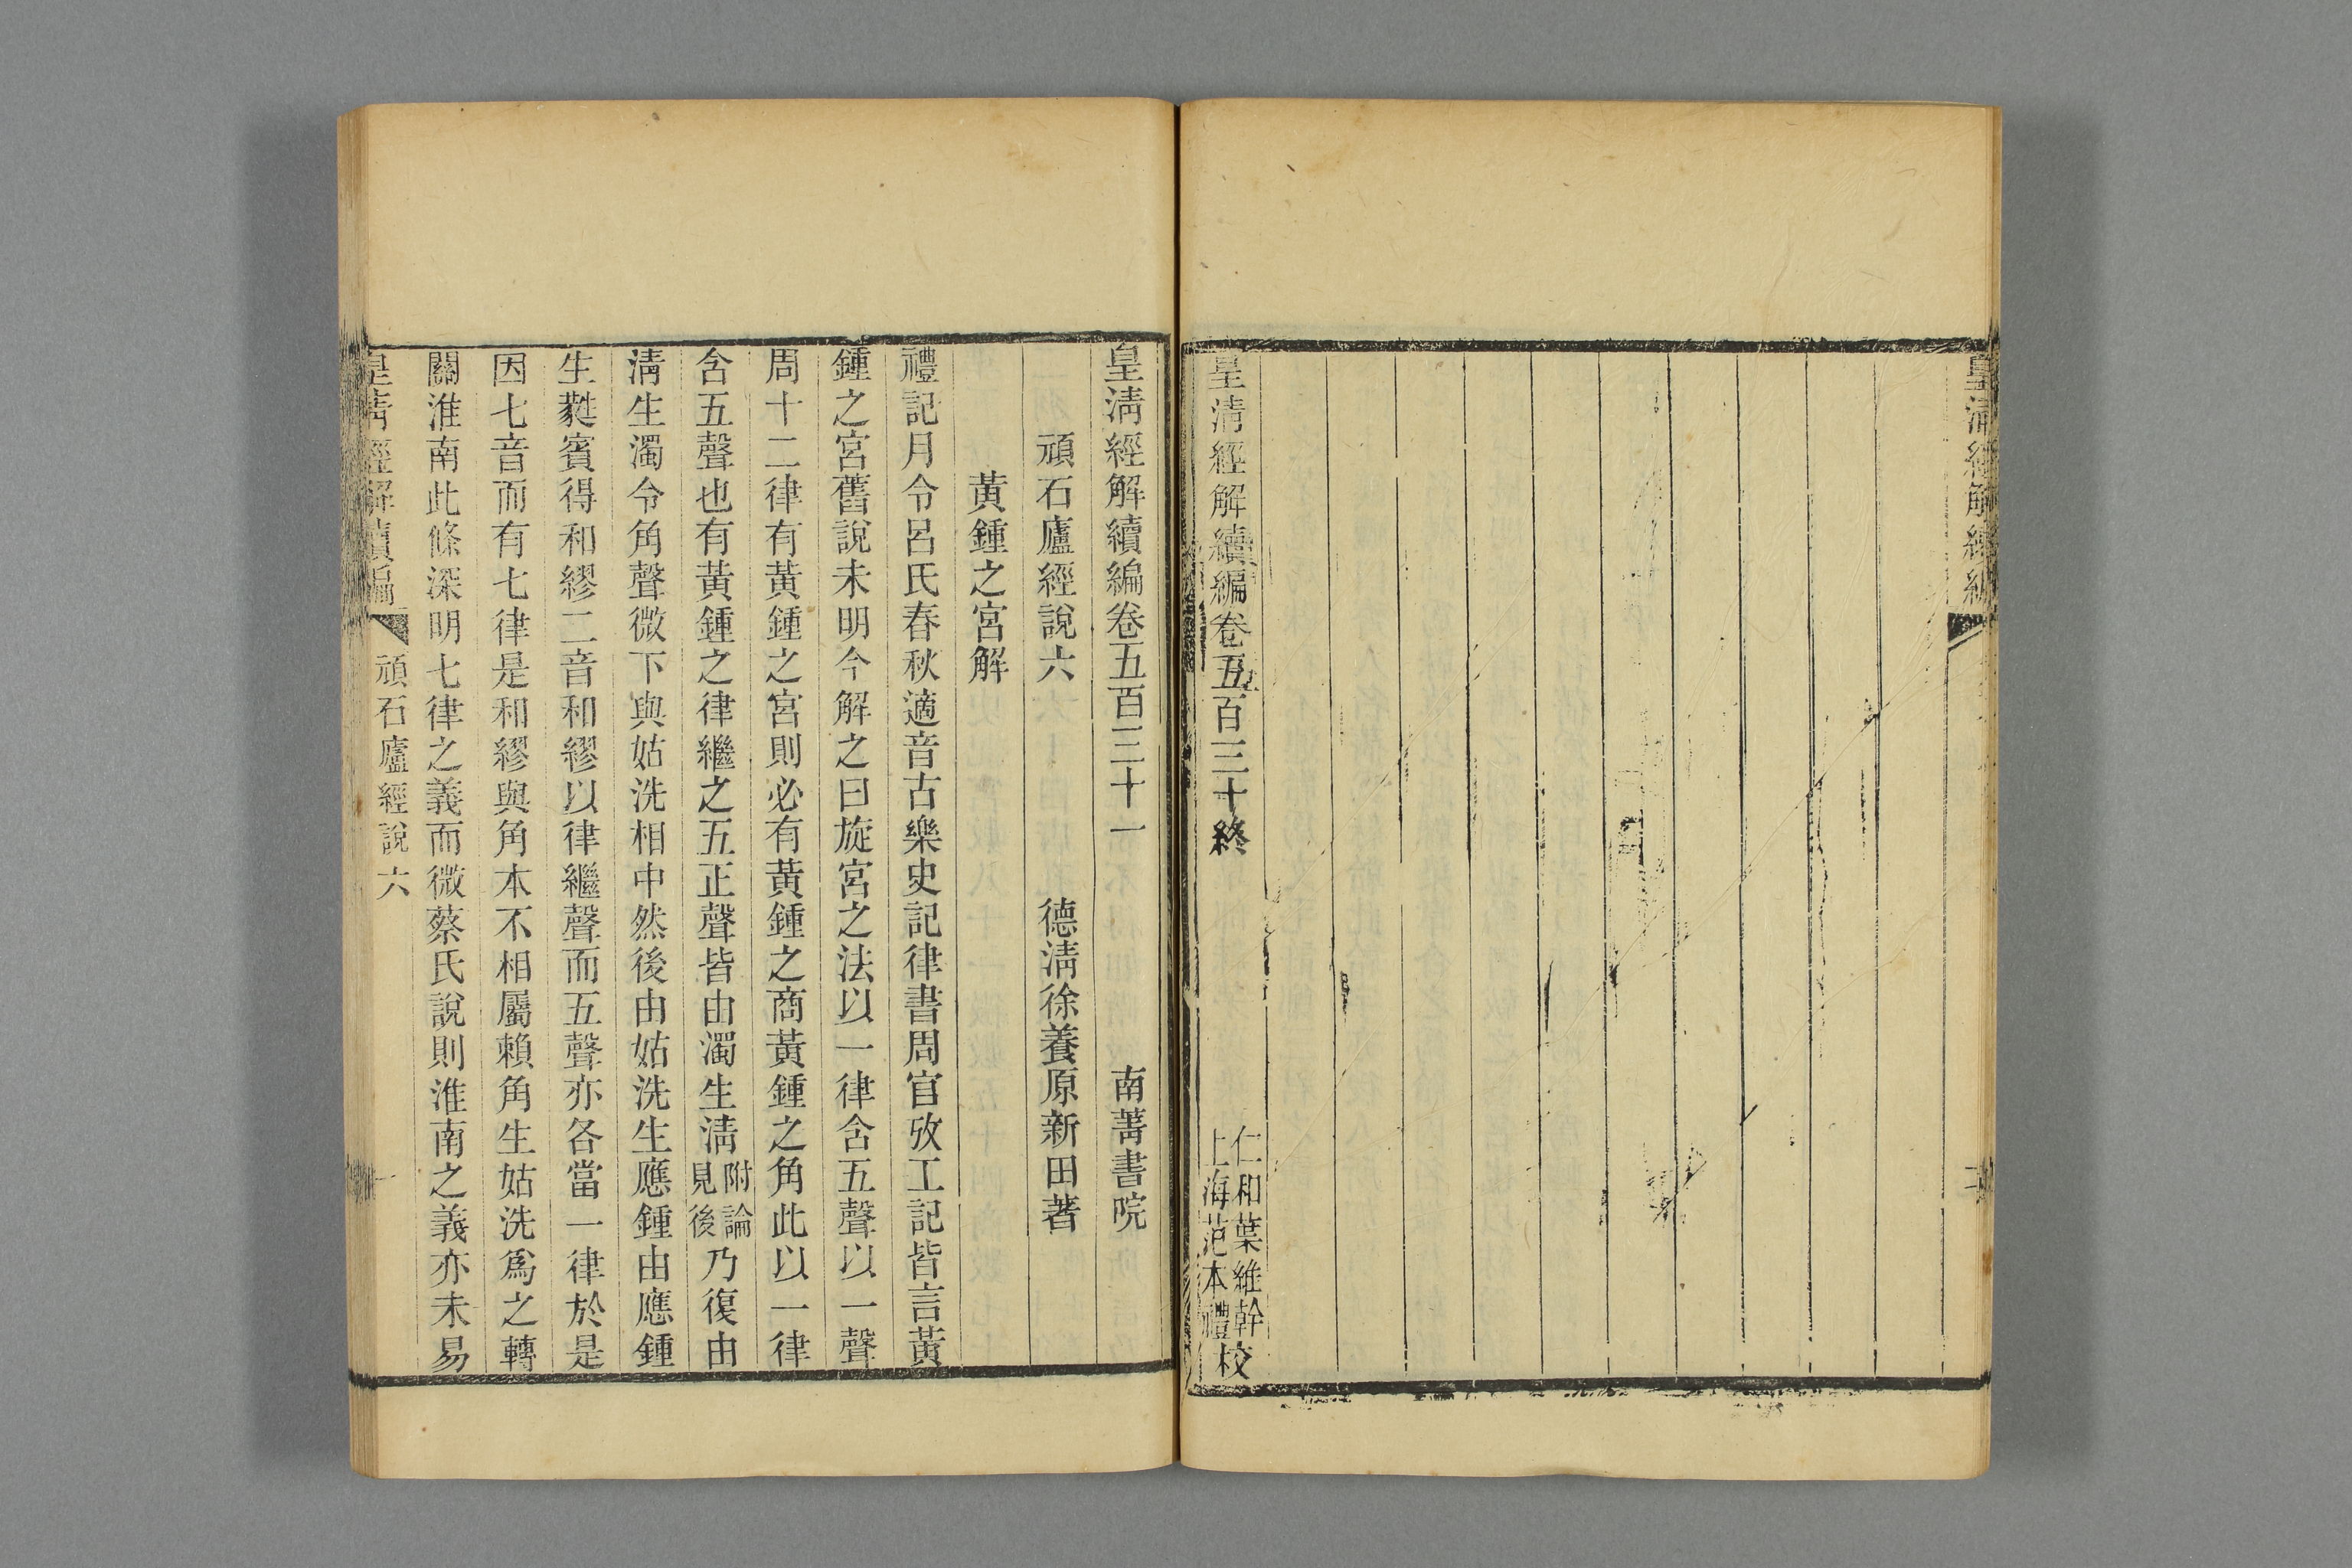 皇清經解續編
皇清經解續編卷五百三十終
仁和葉維幹
上海范本禮校
皇清經解續編卷五百三十一 南菁書院
頑石廬經說六 德清徐養原新田著
黃鍾之宮解
禮記月令呂氏春秋適音古樂史記律書周官攷工記皆言黃
鍾之宮舊說未明今解之曰旋宮之法以一律含五聲以一聲
周十二律有黃鍾之宮則必有黃鍾之商黃鍾之角此以一律
含五聲也有黃鍾之律繼之五正聲皆由濁生清附論見後乃復由
清生濁令角聲微下與姑洗相中然後由姑洗生應鍾由應鍾
生蕤賓得和繆二音和繆以律繼聲而五聲亦各當一律於是
因七音而有七律是和繆與角本不相屬賴角生姑洗爲之轉
關淮南此條深明七律之義而微蔡氏說則淮南之義亦未易
皇清經解續編 頑石廬經說六 一